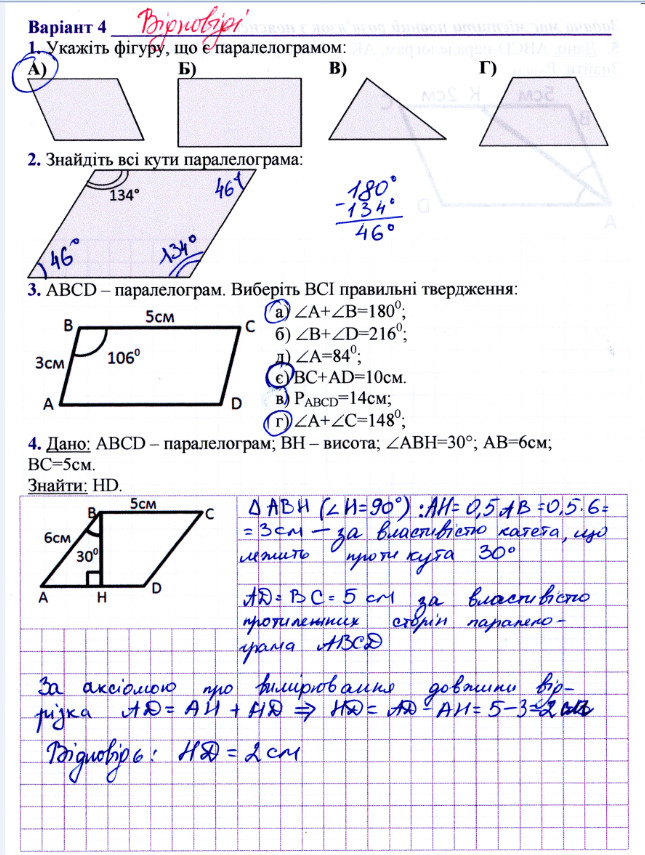 Варіант 4 Відповіді
1. Укажіть фігуру, що є паралелограмом:
А) Б) В) Г)
2. Знайдіть всі кути паралелограма:
134° 46°
46° 134°
180°
-134°
46°
3. ABCD – паралелограм. Виберіть ВСІ правильні твердження:
B 5см C
3см 106⁰
A D
а) ∠A+∠B=180⁰;
б) ∠B+∠D=216⁰;
д) ∠A=84⁰;
є) BC+AD=10см.
в) PABCD=14см;
г) ∠A+∠C=148⁰;
4. Дано: ABCD – паралелограм; BH – висота; ∠ABH=30°; AB=6см;
BC=5см.
Знайти: HD.
B 5см C
6см
30⁰
A H D
Δ ABH (∠H=90°): AH=0,5AB=0,5·6=
=3см – за властивістю катета, що
лежить проти кута 30°
AD=BC=5 см за властивістю
протилежних сторін парале­ло-
грама ABCD
За аксіомою про вимірювання довжини від-
різка AD=AH+HD ⇒ HD=AD-AH=5-3=2см
Відповідь: HD=2см